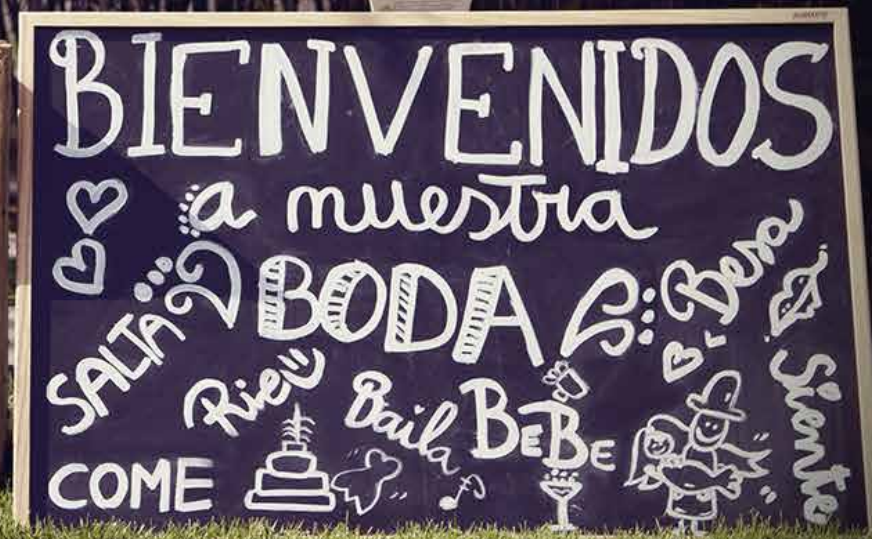 BIENVENIDOS
a muestra
BODA
Besa
SALTA
Rie
Baila
BEBE
Siente
COME